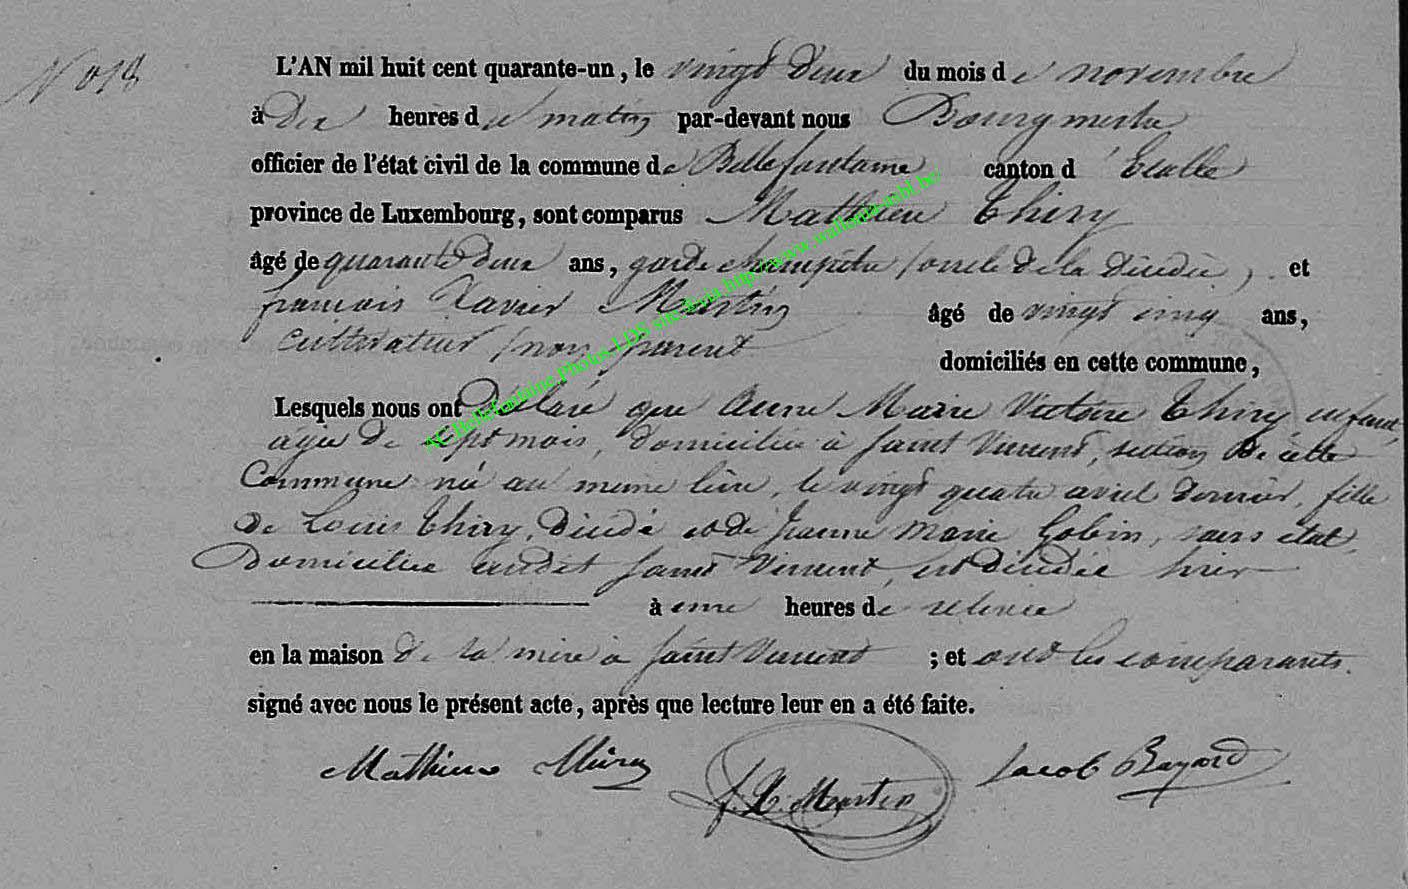 N° 018
L'AN mil huit cent quarante-un, le vingt deux du mois de novembre
à dix heures du matin par-devant nous Bourgmestre
officier de l'état civil de la commune de Bellefontaine canton d'Etalle
province de Luxembourg, sont comparus Mathieu Thiry
âgé de quarante deux ans, garde champetre /oncle de la dicédée/, et
francois Xavier Martin âgé de vingt cinq ans,
cultivateur /non parent domiciliés en cette commune,
Lesquels nous ont déclaré que Anne Marie Victoire Thiry enfant,
agée de sept mois, domiciliée à Saint Vincent, section de cette
Commune née au meme lieu, le vingt quatre avril dernier, fille
de Louis Thiry, dicédé et de Jeanne Marie Gobin, sans état,
Domiciliée audit Saint Vincent, est dicédée hier
à une heures de relevée
en la maison de sa mère à Saint Vincent ; et ont les comparants
signé avec nous le présent acte, après que lecture leur en a été faite.
Mathieu Thiry f. X. Martin Jacob Bayard
AC Bellefontaine Photos LDS site d'avis http://www.wallonia-asbl.be/